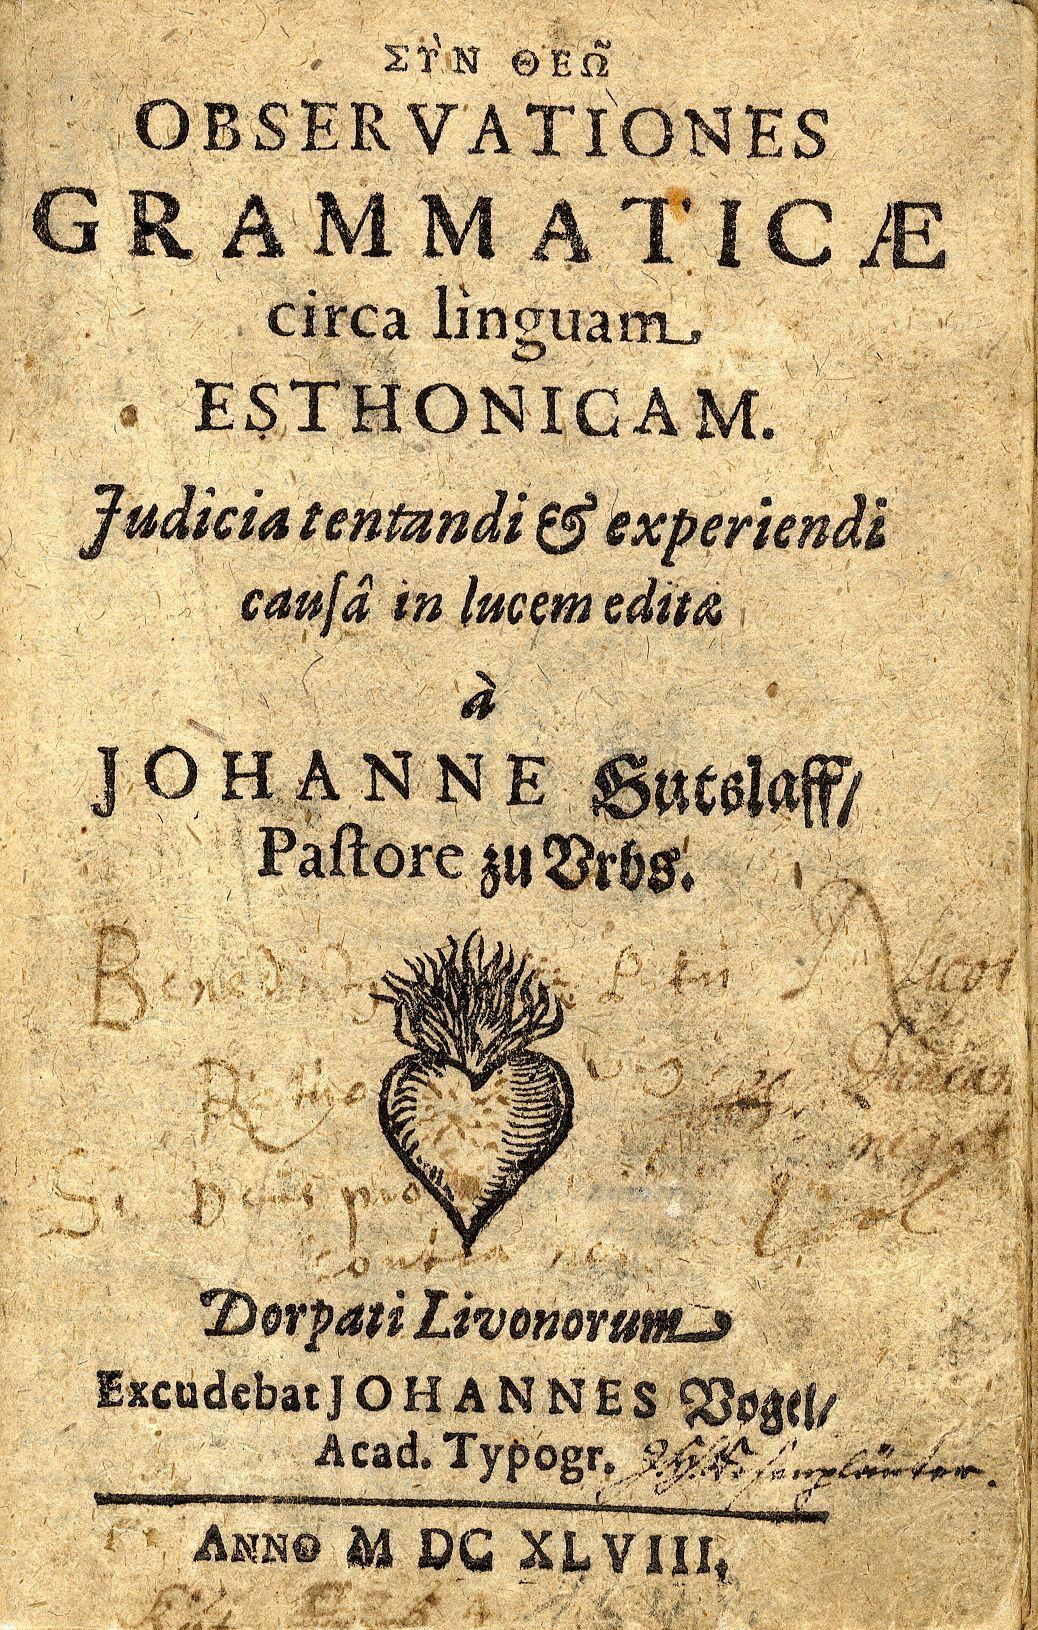 ΣῪΝ ΘΕΩ͂
OBSERVATIONES
GRAMMATICÆ
circa linguam
ESTHONICAM.
Judicia tentandi & experiendi
cauſâ in lucem editæ
à
JOHANNE Gutslaff/
Paſtore zu Vrbs.
Si Deus pro
contra
Dorpati Livonorum
Excudebat JOHANNES Vogel/
Acad. Typogr.
ANNO M DC XLVIII.